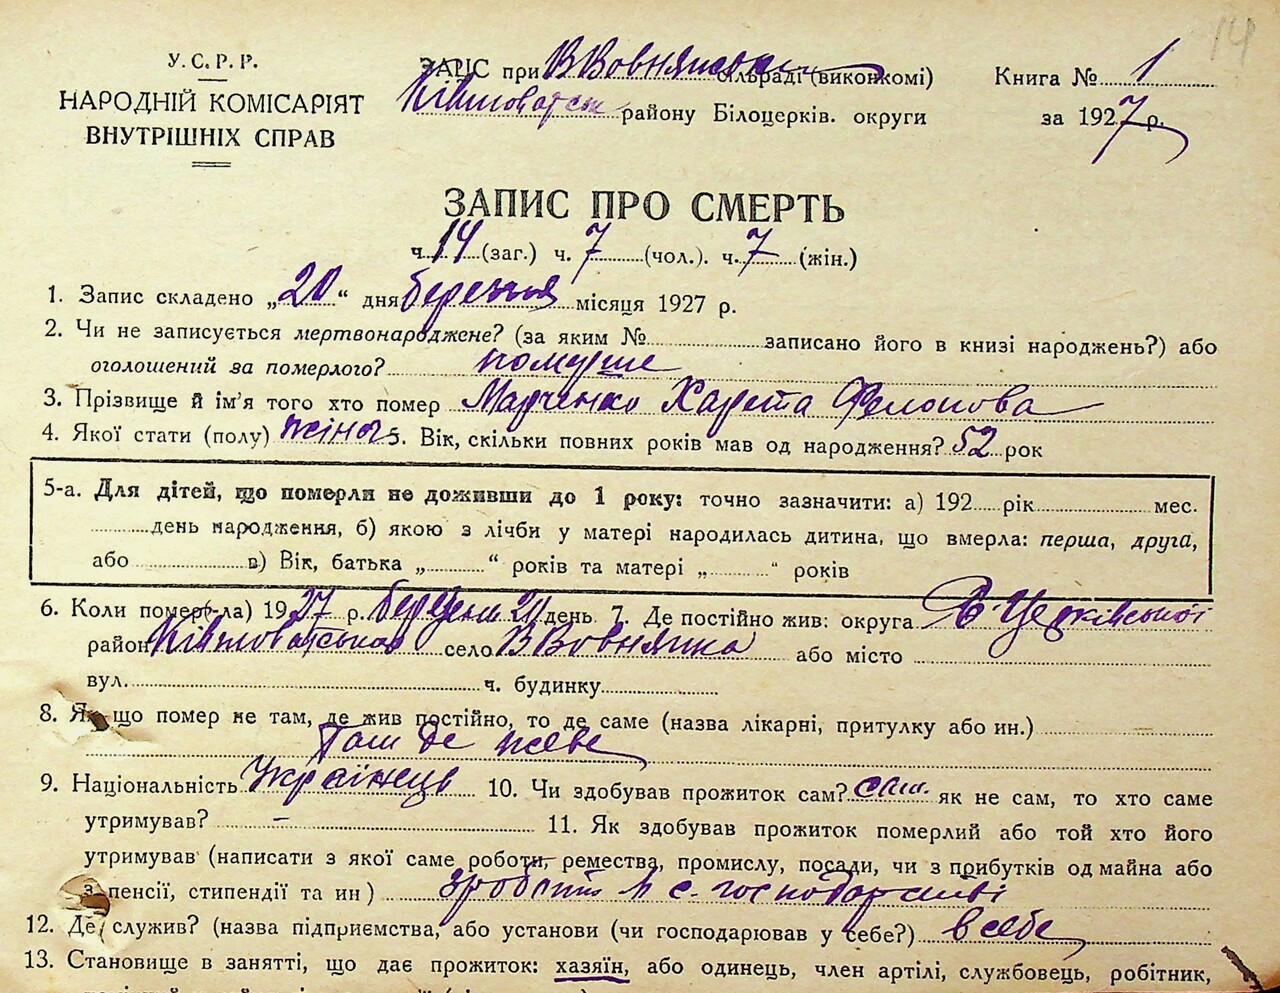 14
У. С. Р. Р.
НАРОДНІЙ КОМІСАРІЯТ
ВНУТРІШНІХ СПРАВ
ЗАПИС при В Вовнянськ сільраді (виконкомі)
Ківшоватськ району Білоцерків. округи
Книга № 1
за 1927 р.
ЗАПИС ПРО СМЕРТЬ
ч. 14 (заг.) ч. 7 (чол.). ч. 7 (жін.)
1. Запис складено „20“ дня березня місяця 1927 р.
2. Чи не записується мертвонароджене? (за яким № записано його в книзі народжень?) або
оголошений за померлого? померше
3. Прізвище й ім'я того хто помер Марченко Харета Филонова
4. Якої стати (полу) жіноч 5. Вік, скільки повних років мав од народження? 52 рок
5-а. Для дітей, що померли не доживши до 1 року: точно зазначити: а) 192 рік мес.
день народження, б) якою з лічби у матері народилась дитина, що вмерла: перша, друга,
або в) Вік, батька „ “ років та матері „ “ років
6. Коли помер(-ла) 1927 р. березня 20 день 7. Де постійно жив: округа Б-Церківської
район Ківшоватськ село В Вовнянка або місто
вул. ч. будинку
8. Як що помер не там, де жив постійно, то де саме (назва лікарні, притулку або ин.)
Там де живе
9. Національність Українець 10. Чи здобував прожиток сам? сам. як не сам, то хто саме
утримував? – 11. Як здобував прожиток померлий або той хто його
утримував (написати з якої саме роботи, ремества, промислу, посади, чи з прибутків од майна або
з пенсії, стипендії та ин) с. господарстві
12. Де служив? (назва підприємства, або установи (чи господарював у себе?) в себе
13. Становище в занятті, що дає прожиток: хазяїн, або одинець, член артілі, службовець, робітник,